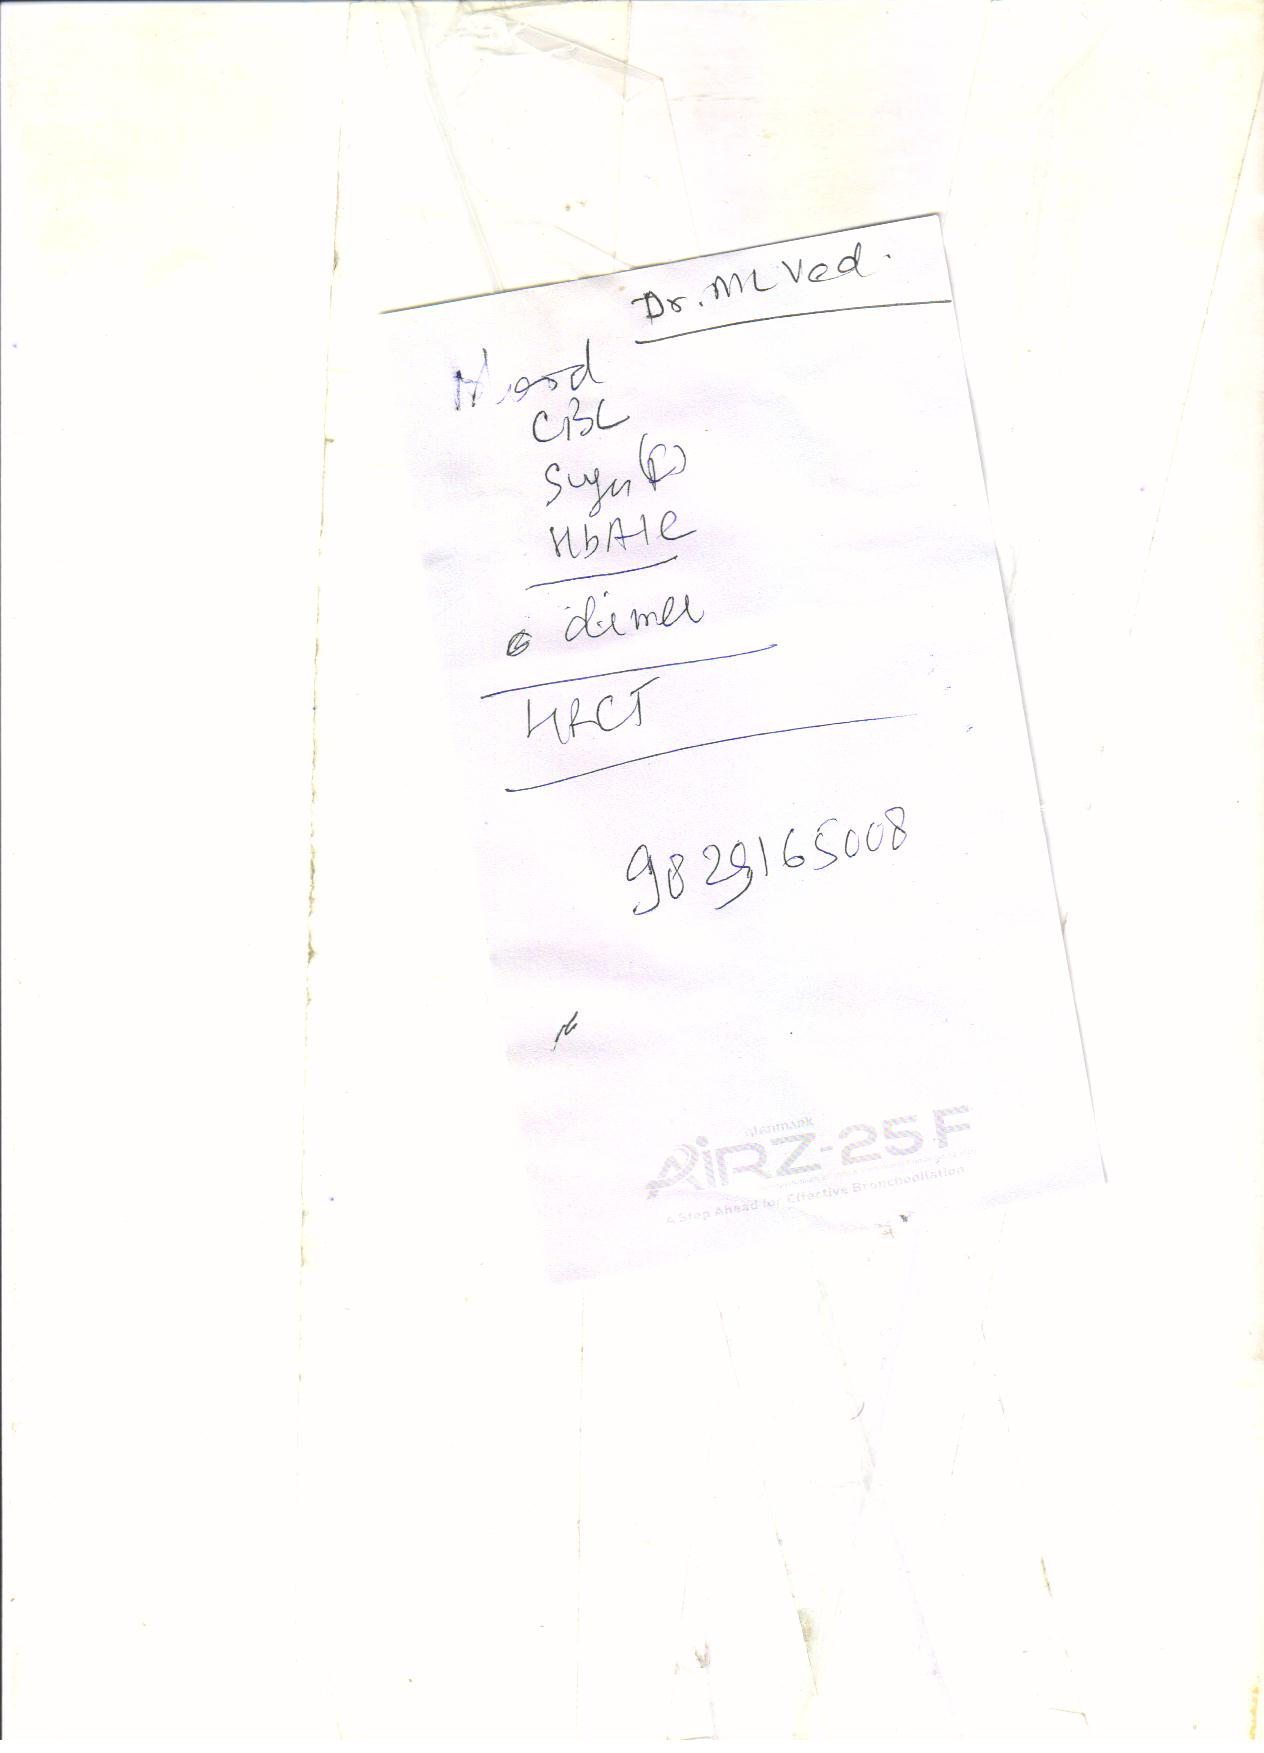 Dr. ML Ved.
CBC
Sugar (R)
HbA1c
dimer
HRCT
9829165008
glenmark
AIRZ-25F
A Step Ahead for Effective Bronchodilation